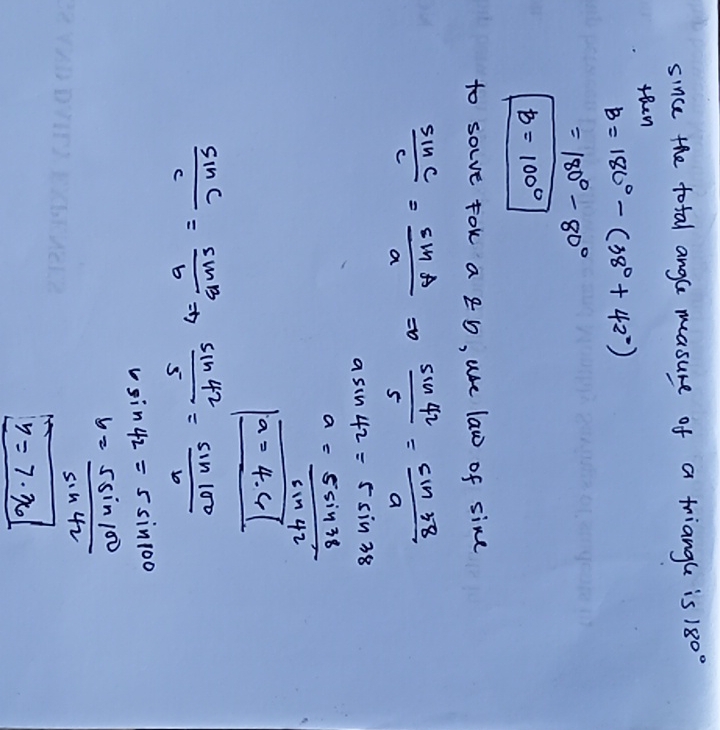 since the total angle measure of a triangle is 180°
then
B = 180° - (38° + 42°)
= 180° - 80°
B = 100°
to solve for a & b, use law of sine
sin C / c = sin A / a ⇒ sin 42 / 5 = sin 38 / a
a sin 42 = 5 sin 38
a = 5 sin 38 / sin 42
a = 4.6
sin C / c = sin B / b ⇒ sin 42 / 5 = sin 100 / b
b sin 42 = 5 sin 100
b = 5 sin 100 / sin 42
AND DAILY EXPENSES